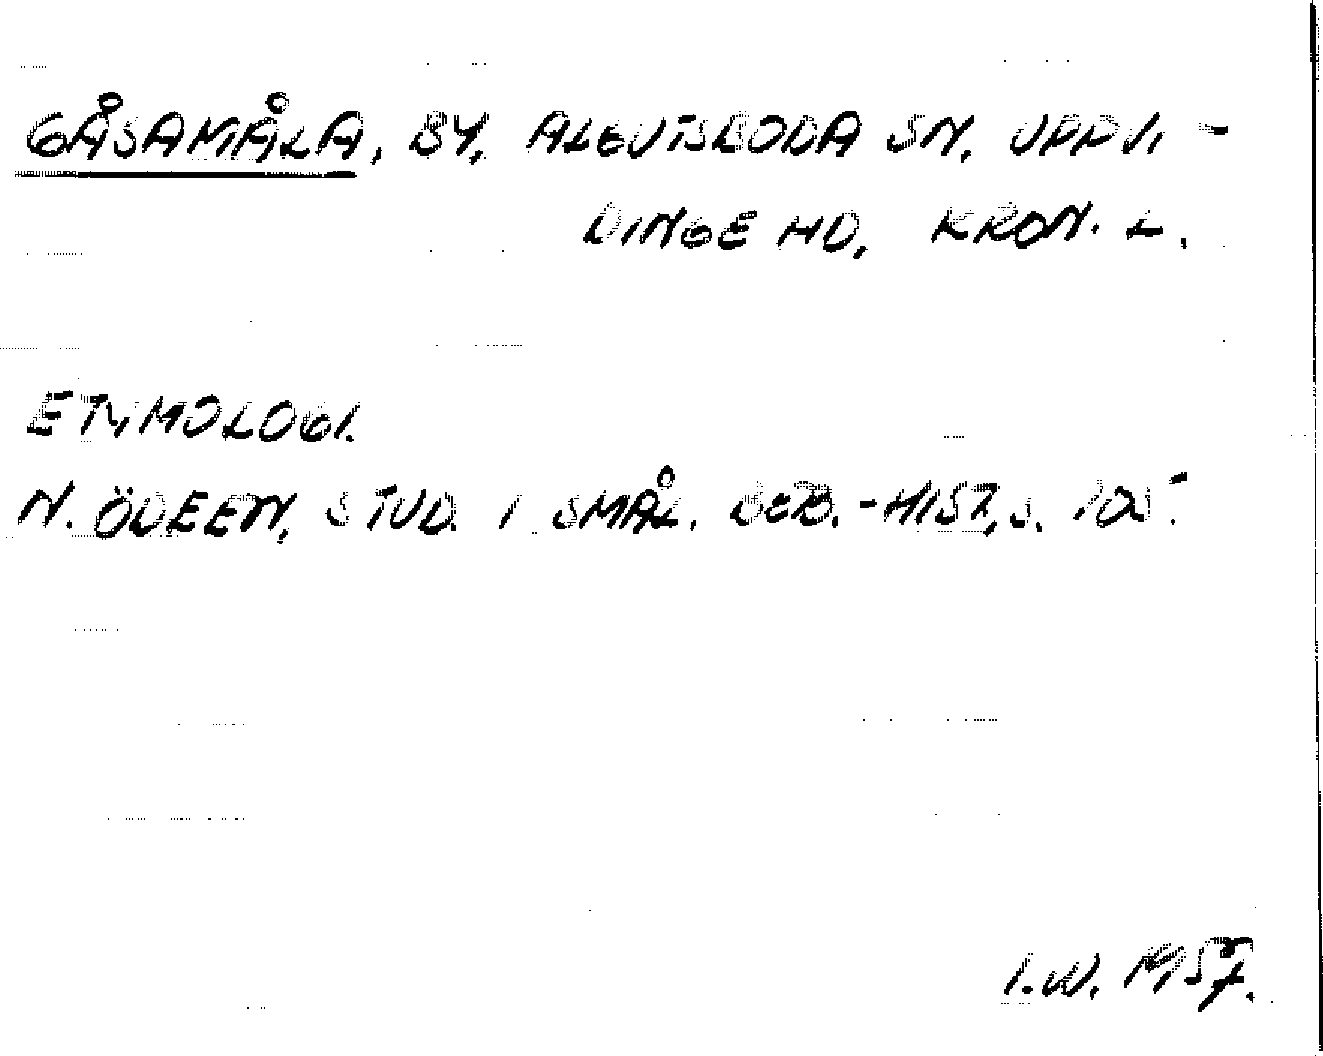 GÅSAMÅLA, BY, ÄLGHULTSBODA SN, UPPVI-
DINGE HD, KRON. L.
ETYMOLOGI.
N. ÖDEEN, STUD. I SMÅL. BEB.-HIST, S. 105.
I.W. 1957.